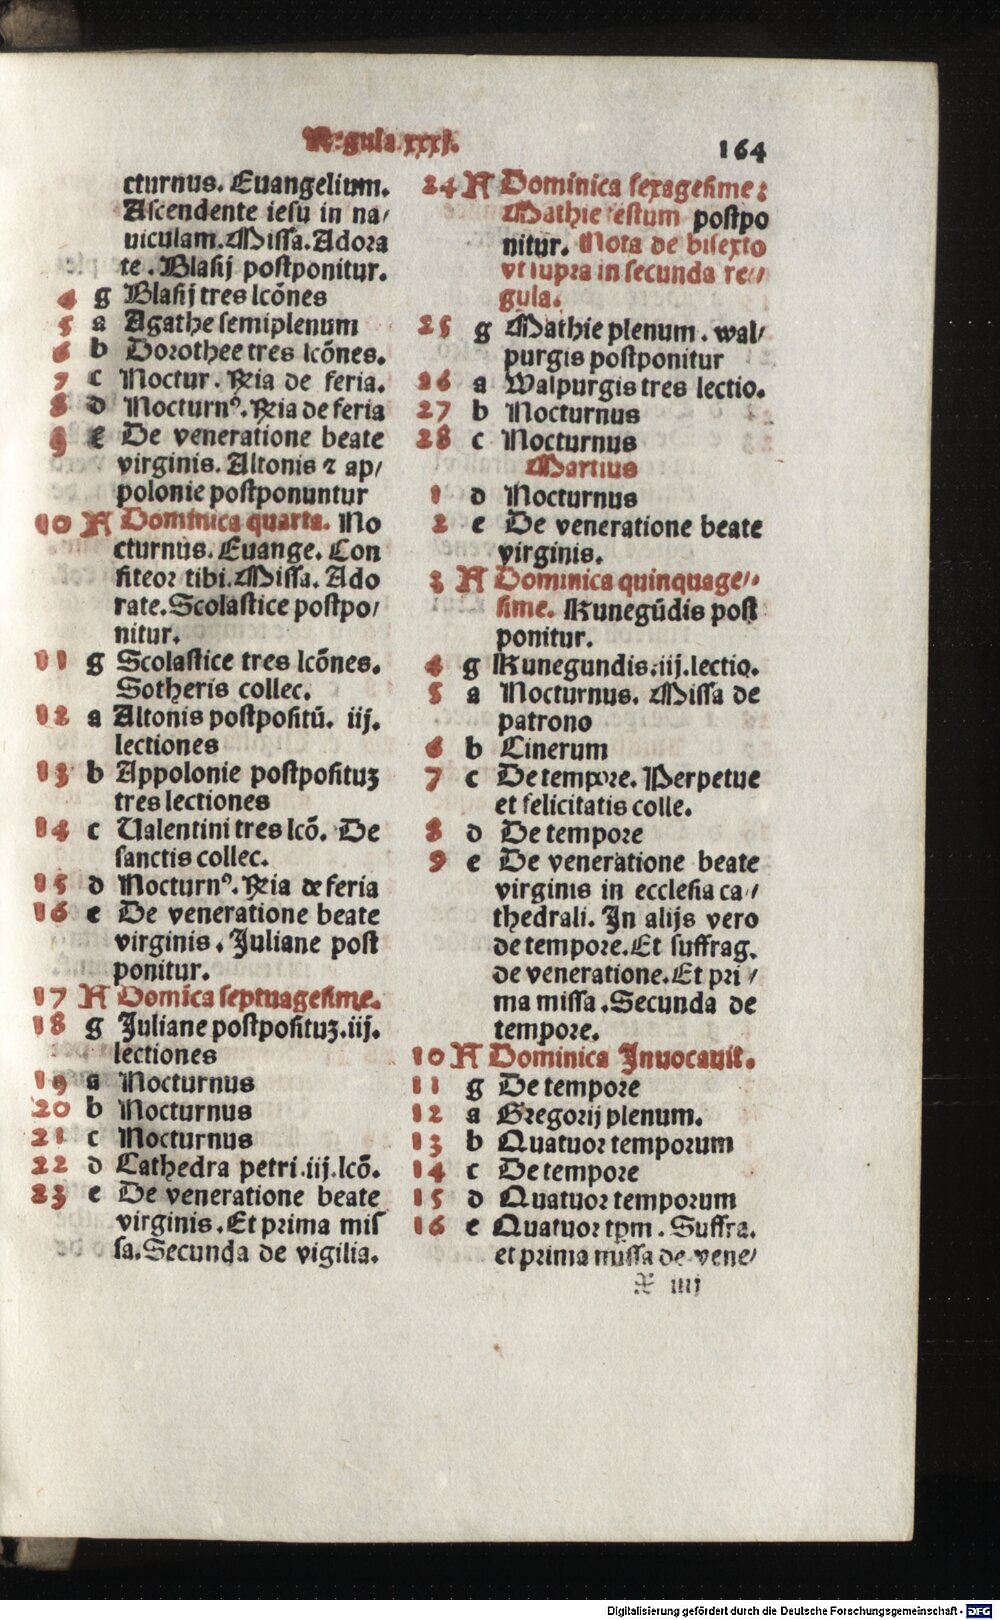 Regula xxxj.
164
cturnus. Euangelium.
Ascendente iesu in na/
uiculam. Missa. Adora
te. Blasij postponitur.
4 g Blasij tres lcōnes
5 a Agathe semiplenum
6 b Dorothee tres lcōnes.
7 c Noctur. R̄ia de feria.
8 d Nocturnꝰ. R̄ia de feria
9 e De veneratione beate
virginis. Altonis ⁊ ap/
polonie postponuntur
10 A Dominica quarta. No
cturnus. Euange. Con
fiteor tibi. Missa. Ado
rate. Scolastice postpo/
nitur.
11 g Scolastice tres lcōnes.
Sotheris collec.
12 a Altonis postpositū. iij.
lectiones
13 b Appolonie postposituꝫ
tres lectiones
14 c Ualentini tres lcō. De
sanctis collec.
15 d Nocturnꝰ. R̄ia de feria
16 e De veneratione beate
virginis. Juliane post
ponitur.
17 A Domīca septuagesime.
18 g Juliane postposituꝫ. iij.
lectiones
19 a Nocturnus
20 b Nocturnus
21 c Nocturnus
22 d Cathedra petri. iij. lcō.
23 e De veneratione beate
virginis. Et prima mis
sa. Secunda de vigilia.
24 A Dominica sexagesime:
Mathie festum postpo
nitur. Nota de bisexto
vt supra in secunda re//
gula.
25 g Mathie plenum. wal/
purgis postponitur
26 a Walpurgis tres lectio.
27 b Nocturnus
28 c Nocturnus
Martius
1 d Nocturnus
2 e De veneratione beate
virginis.
3 A Dominica quinquage//
sime. Kunegūdis post
ponitur.
4 g Kunegundis. iij. lectio.
5 a Nocturnus. Missa de
patrono
6 b Cinerum
7 c De tempore. Perpetue
et felicitatis colle.
8 d De tempore
9 e De veneratione beate
virginis in ecclesia ca//
thedrali. In alijs vero
de tempore. Et suffrag.
de veneratione. Et pri/
ma missa. Secunda de
tempore.
10 A Dominica Inuocauit.
11 g De tempore
12 a Gregorij plenum.
13 b Quatuor temporum
14 c De tempore
15 d Quatuor temporum
16 e Quatuor tꝑm. Suffra.
et prima missa de vene/
X iiij
Digitalisierung gefördert durch die Deutsche Forschungsgemeinschaft - DFG